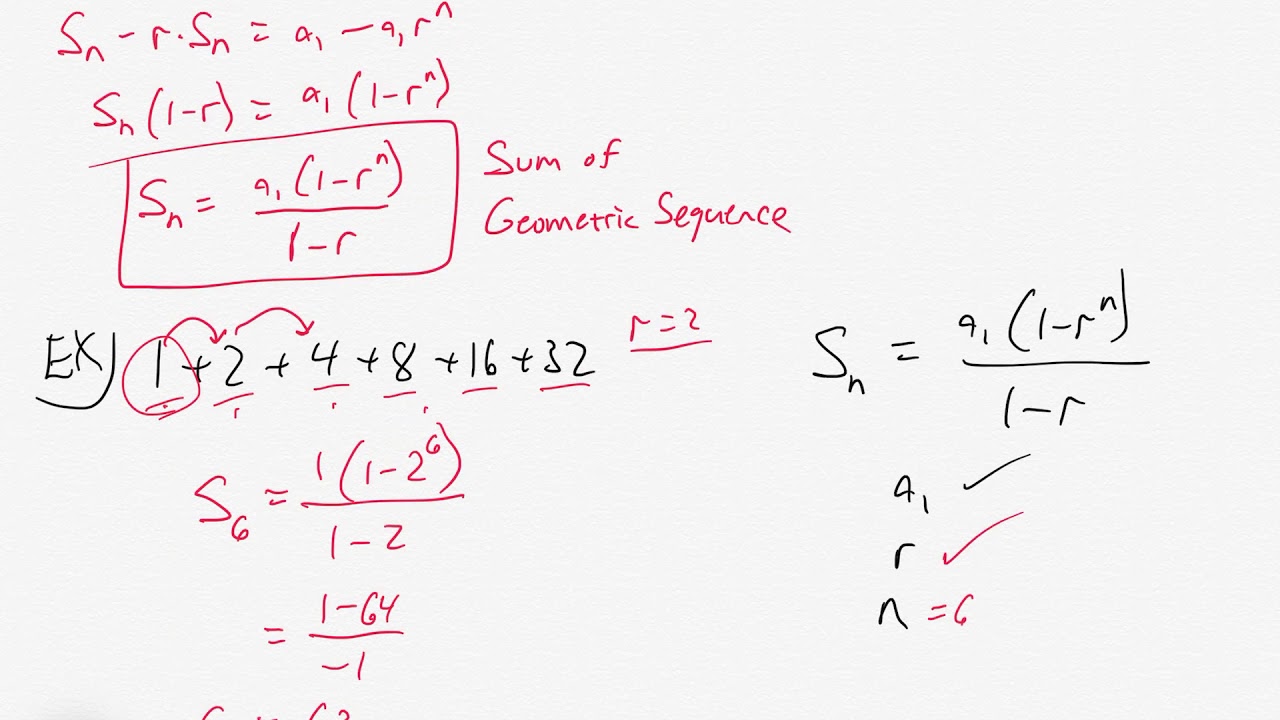 Sₙ - r·Sₙ = a₁ - a₁rⁿ
Sₙ(1-r) = a₁(1-rⁿ)
Sₙ = a₁(1-rⁿ) / 1-r
Sum of
Geometric Sequence
EX) 1 + 2 + 4 + 8 + 16 + 32
r = 2
S₆ = 1(1-2⁶) / 1-2
= 1-64 / -1
Sₙ = a₁(1-rⁿ) / 1-r
a₁ ✓
r ✓
n = 6